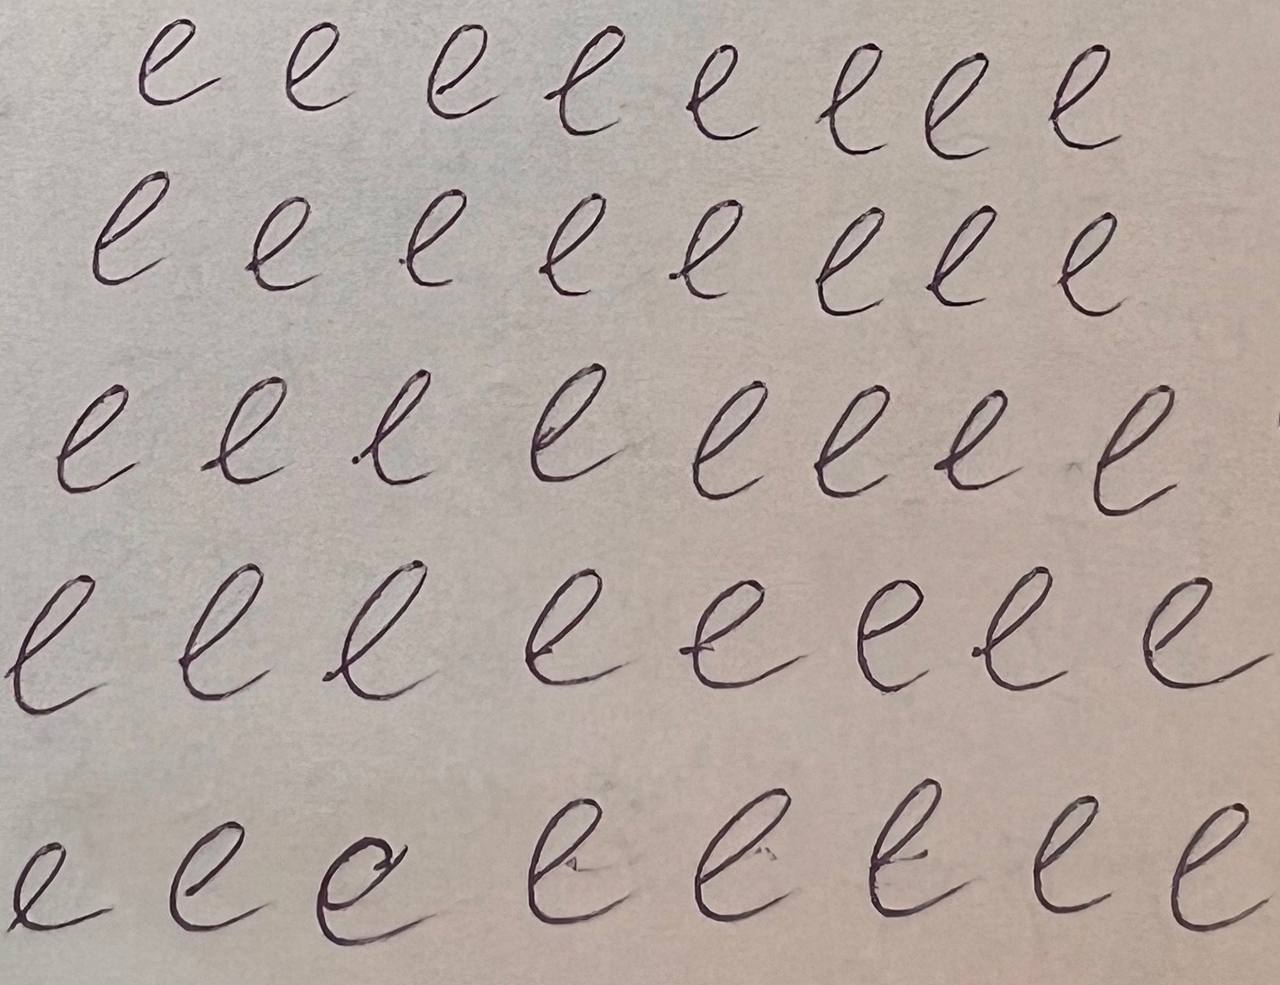 e e e e e e e e
e e e e e e e e
e e e e e e e e
e e e e e e e e
e e e e e e e e